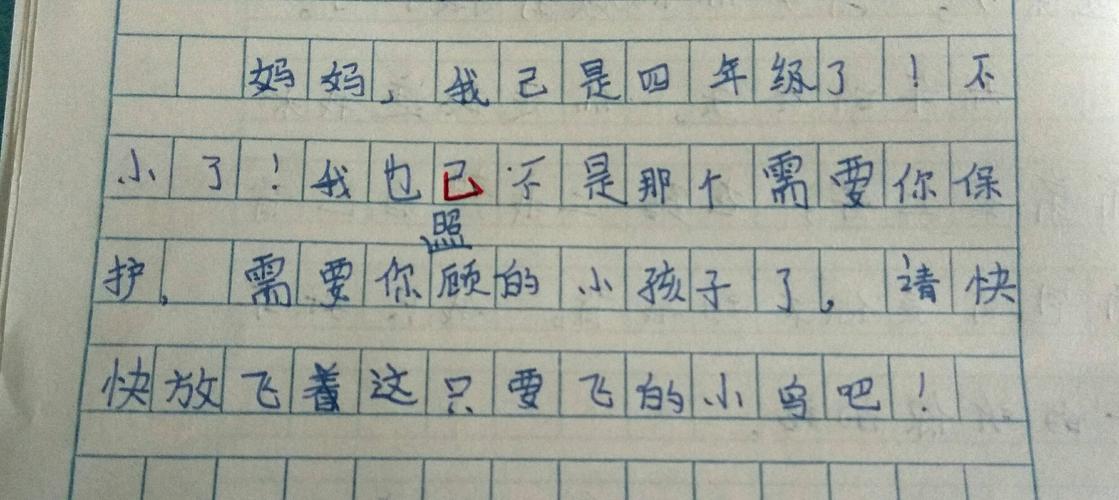 妈妈，我己是四年级了！不
小了！我也已不是那个需要你保
护，需要你照顾的小孩子了。请快
快放飞着这只要飞的小鸟吧！